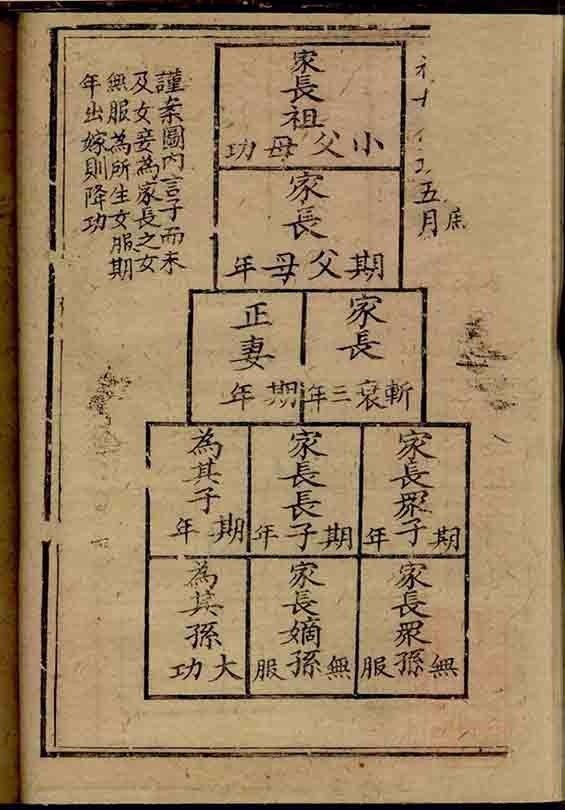 五月
庶
家長祖
小父母功
家長
期父母年
家長
斬衰三年
正妻
期年
家長眾子
期年
家長長子
期年
為其子
期年
家長眾孫
無服
家長嫡孫
無服
為其孫
大功
謹案圖內言子而未
及女妾為家長之女
無服為所生女服期
年出嫁則降功